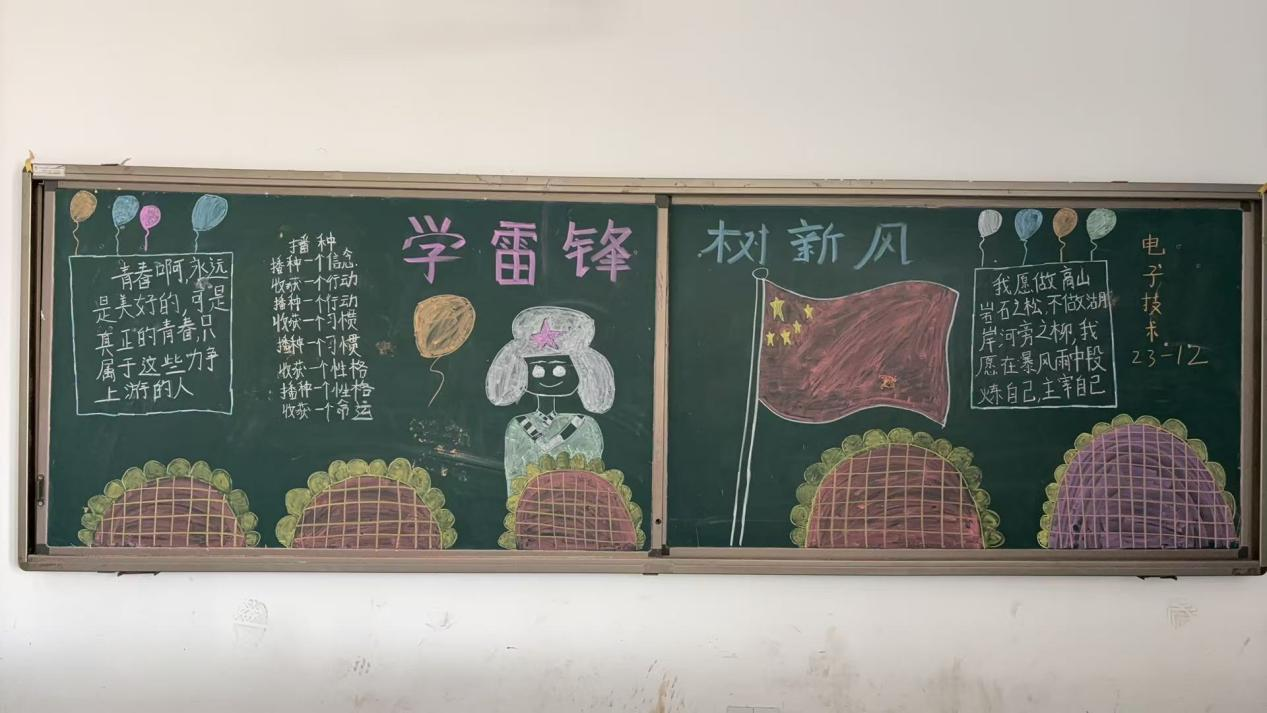 学雷锋 树新风
青春啊,永远
是美好的,可是
真正的青春,只
属于这些力争
上游的人
播种
播种一个信念
收获一个行动
播种一个行动
收获一个习惯
播种一个习惯
收获一个性格
播种一个性格
收获一个命运
我愿做高山
岩石之松,不做湖
岸河旁之柳,我
愿在暴风雨中段
炼自己,主宰自己
电子技术
23-12